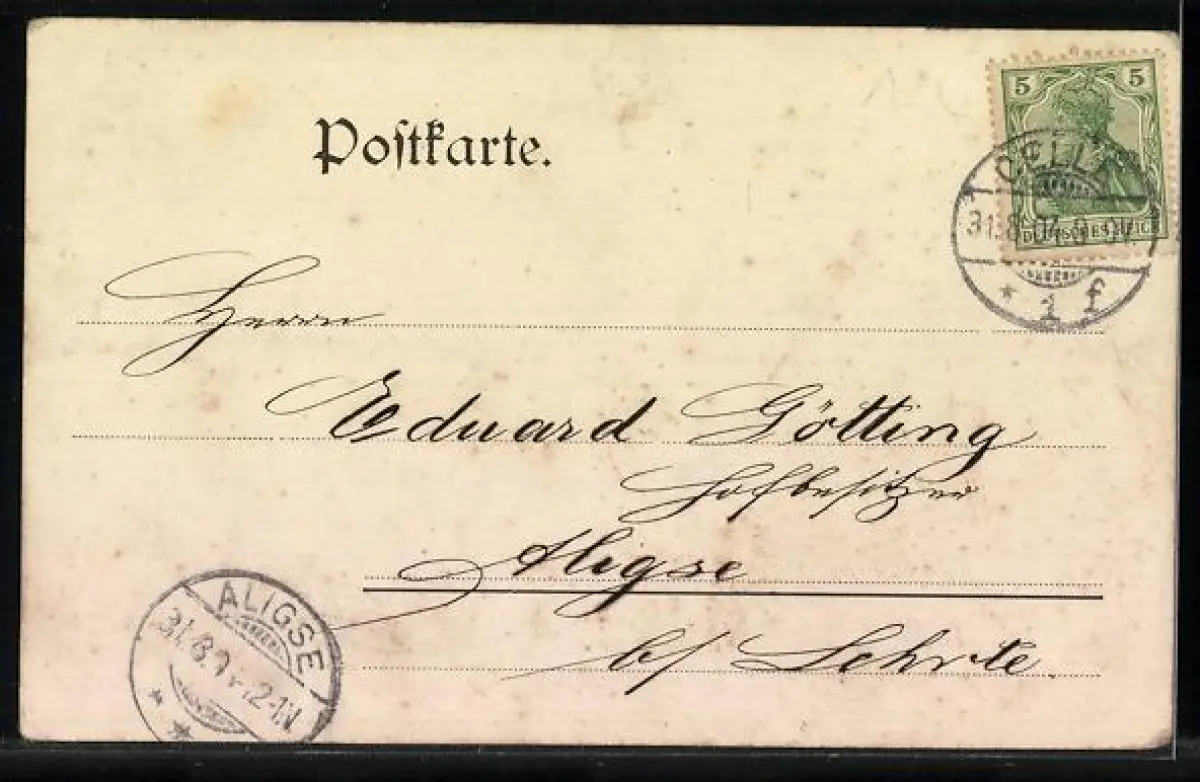 Postkarte.
5 5
DEUTSCHES REICH
CELLE
31.8.01.8-9V.
* 1 f
Herrn
Eduard Götting
Hofbesitzer
Aligse
b/ Lehrte
ALIGSE
31.8.01.12-1N
* *